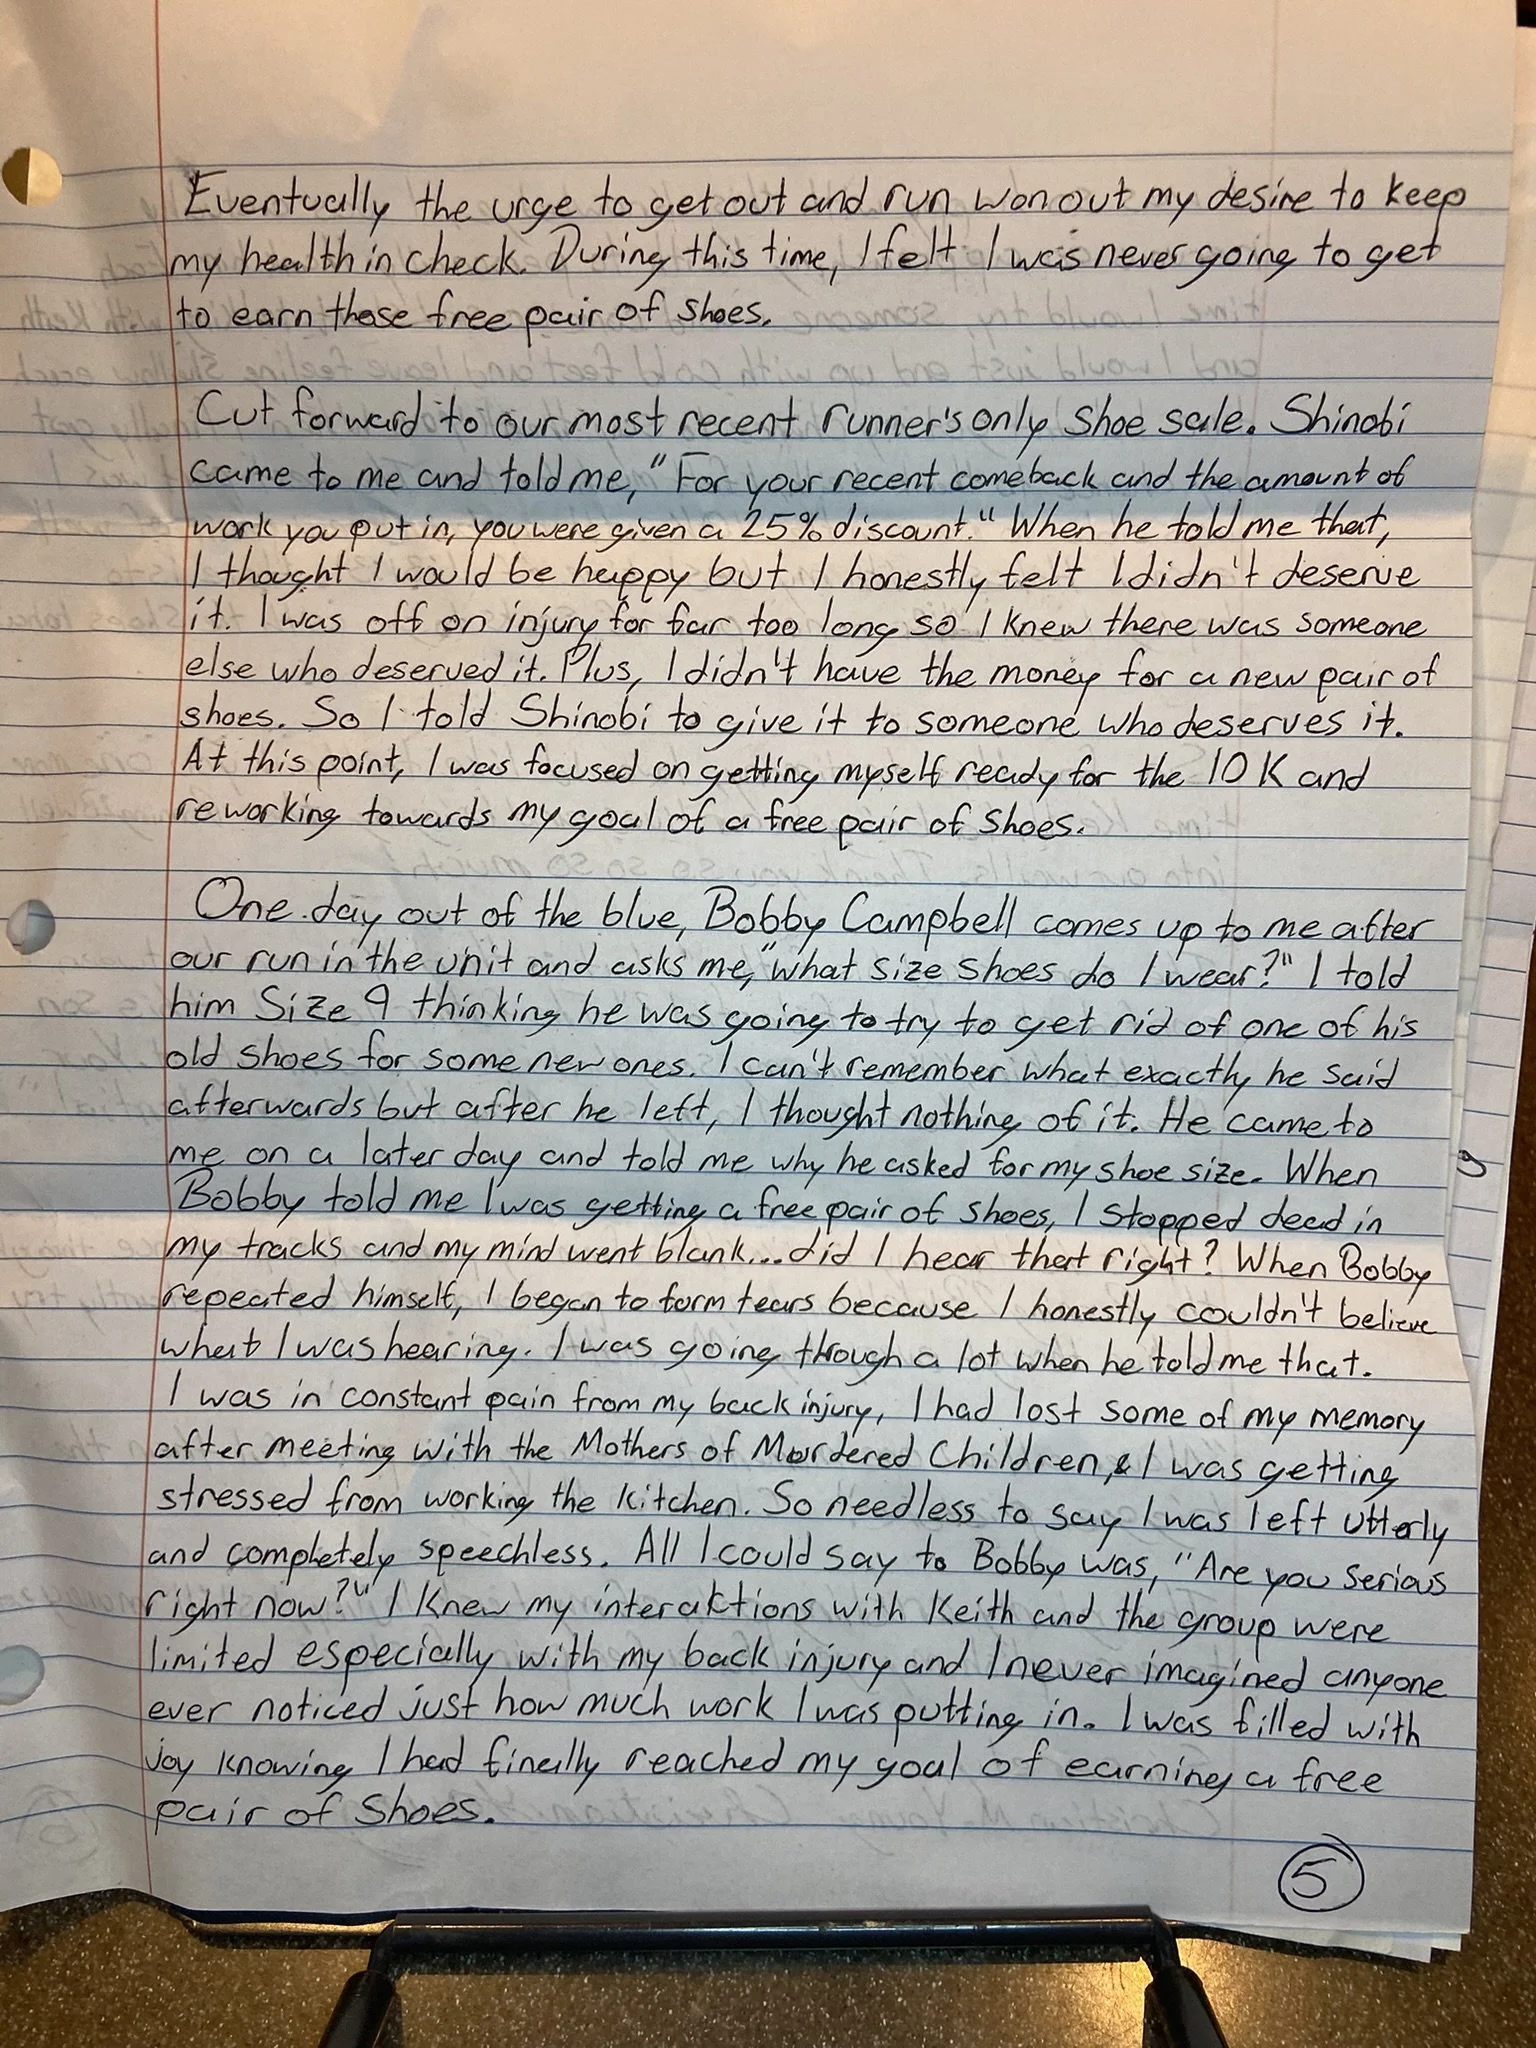 Eventually the urge to get out and run won out my desire to keep
my health in check. During this time, I felt I was never going to get
to earn those free pair of shoes.
Cut forward to our most recent runner's only shoe sale. Shinobi
came to me and told me, "For your recent comeback and the amount of
work you put in, you were given a 25% discount." When he told me that,
I thought I would be happy but I honestly felt I didn't deserve
it. I was off on injury for far too long so I knew there was someone
else who deserved it. Plus, I didn't have the money for a new pair of
shoes. So I told Shinobi to give it to someone who deserves it.
At this point, I was focused on getting myself ready for the 10K and
reworking towards my goal of a free pair of shoes.
One day out of the blue, Bobby Campbell comes up to me after
our run in the unit and asks me, "what size shoes do I wear?" I told
him size 9 thinking he was going to try to get rid of one of his
old shoes for some new ones. I can't remember what exactly he said
afterwards but after he left, I thought nothing of it. He came to
me on a later day and told me why he asked for my shoe size. When
Bobby told me I was getting a free pair of shoes, I stopped dead in
my tracks and my mind went blank... did I hear that right? When Bobby
repeated himself, I began to form tears because I honestly couldn't believe
what I was hearing. I was going through a lot when he told me that.
I was in constant pain from my back injury, I had lost some of my memory
after meeting with the Mothers of Murdered Children, & I was getting
stressed from working the kitchen. So needless to say I was left utterly
and completely speechless. All I could say to Bobby was, "Are you serious
right now?" I knew my interaktions with Keith and the group were
limited especially with my back injury and I never imagined anyone
ever noticed just how much work I was putting in. I was filled with
joy knowing I had finally reached my goal of earning a free
pair of shoes.
5